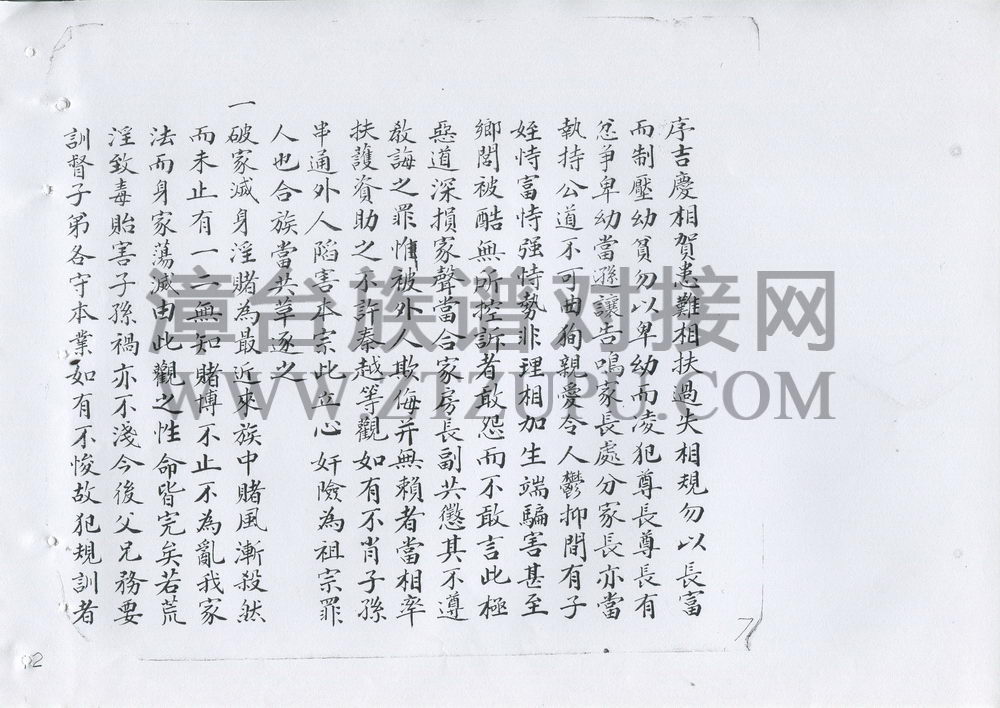 序吉慶相賀患難相扶過失相規勿以長富
而制壓幼貧勿以卑幼而凌犯尊長尊長有
忿爭卑幼當遜讓告鳴家長處分家長亦當
執持公道不可曲狥親愛令人鬱抑間有子
姪恃富恃强恃勢非理相加生端騙害甚至
鄉閭被酷無所控訴者敢怨而不敢言此極
惡道深損家聲當合家房長副共懲其不遵
教誨之罪惟被外人欺侮并無賴者當相率
扶護資助之不許秦越等觀如有不肖子孫
串通外人陷害本宗此立心奸險為祖宗罪
人也合族當共革逐之
一破家滅身淫賭為最近來族中賭風漸殺然
而未止有一二無知賭博不止不為亂我家
法而身家蕩滅由此觀之性命皆完矣若荒
淫致毒貽害子孫禍亦不淺今後父兄務要
訓督子弟各守本業如有不悛故犯規訓者
7
02
漳台族谱对接网
WWW.ZTZUPU.COM